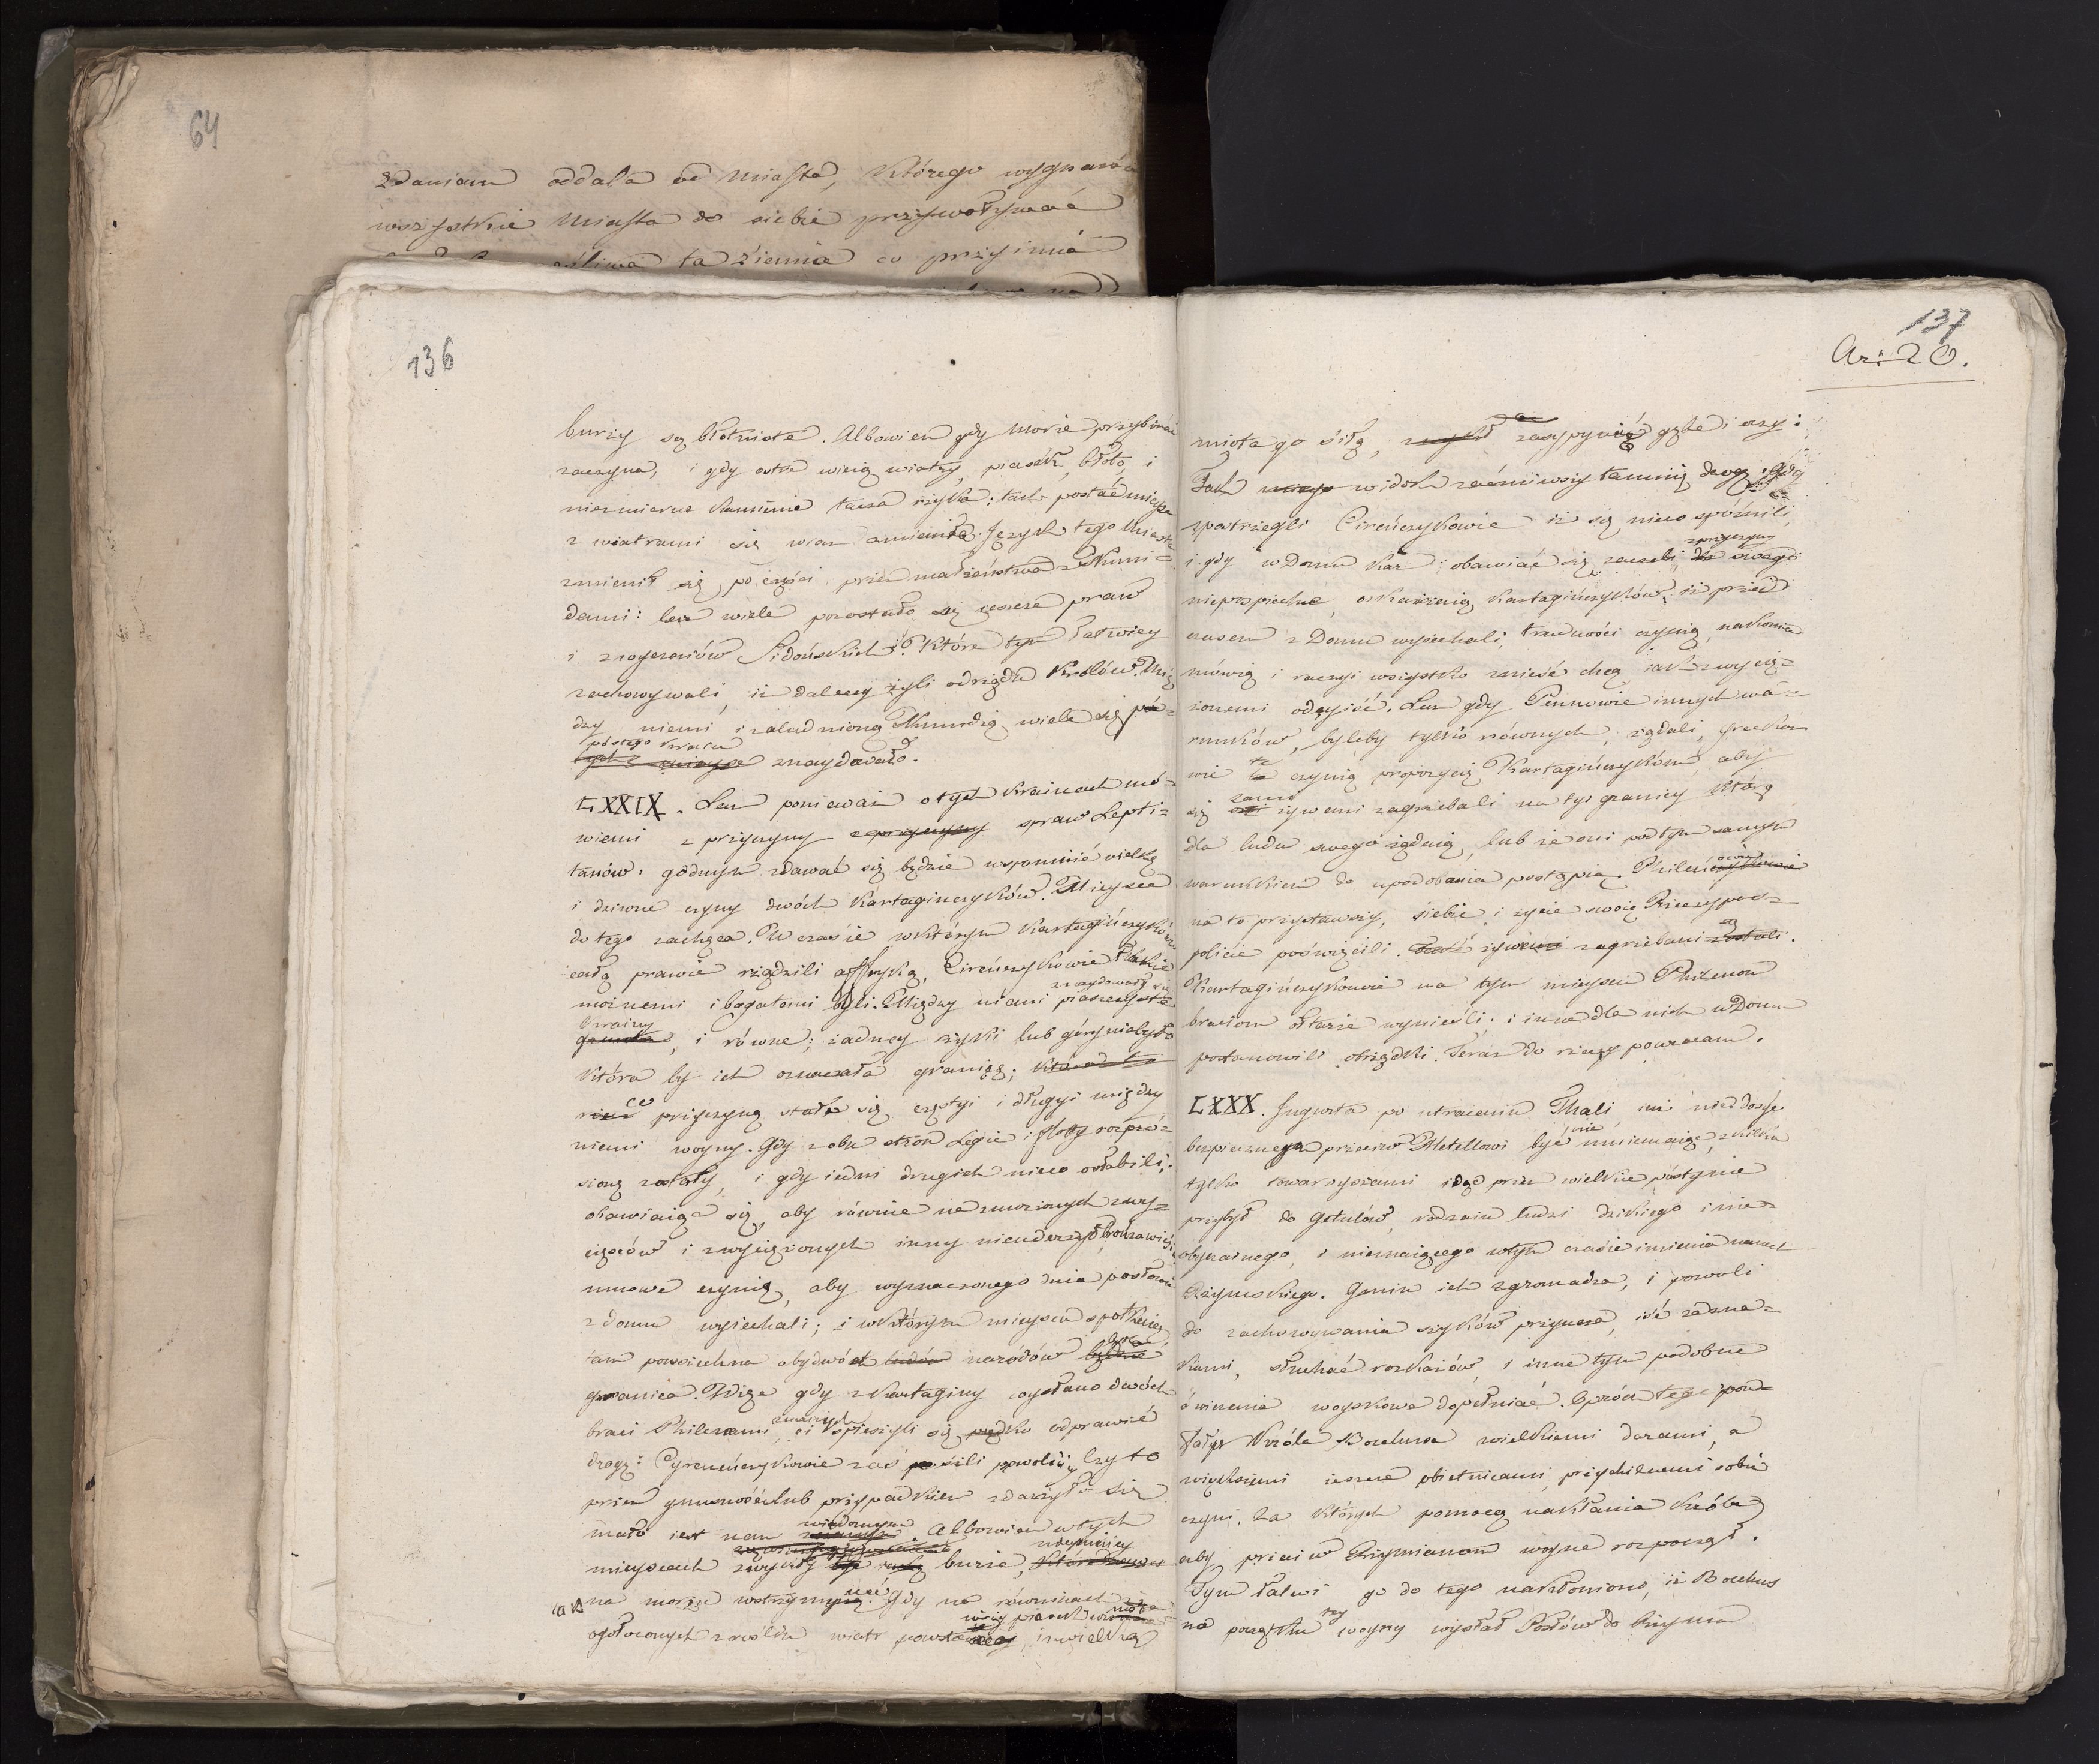 64
zdaniem oddala od miasta, którego wygnańca
wszystkie miasta do siebie przyzwoływać
ta ziemia co przyimie
136
burzy są błotniste. Albowiem gdy morze przybierać
zaczyna, i gdy ostre wieią wiatry, piasek, błoto, i
niezmierne kamienie tacza rzyka: tak postać mieysc
z wiatrami się wraz zmienia. Język tego miasta
zmienił się po części przez małżeństwa z Numi=
dami: lecz wiele pozostało się ieszcze praw
i zwyczaiów Sidońskich: które tym łatwiey
zachowywali, iż daleey żyli od rządu Królów. Mię
dzy niemi i zaludnioną Numidią wiele się pu=
pustego kraiu
tych mieysc znaydowało.
LXXIX. Lecz ponieważ o tych krainach mó=
wiemi z przyczyny z przyczyny spraw Lepti=
tanów: godnym zdawać się będzie wspomnić wielkę
i dziwne czyny dwóch Kartagińczyków. Mieysce
do tego zachęca. W czasie w którym Kartagińczykowie
całą prawie rządzili affryką, Cireńczykowie także
możnemi i bogatemi byli. Między niemi piaszczyste
znaydowały się
krainy
grunta, i równe; żadney rzyki lub góry niebyło
która by ich oznaczała granicę; która to
rzecz co przyczyną stało się częstyi i długyi między
niemi woyny. Gdy z obu stron Legie i floty rozpró=
szone zostały, i gdy iedni drugich nieco osłabili;
obawiaiąc się, aby równie nie zmożonych zwy=
ciężców i zwyciężonych inny nieuderzył,
umowę czynią, aby wyznaczonego dnia posłowie
z domu wyiechali; i w którym mieyscu spotkaią,
tam powszechna obydwóch ludów narodów będzie
granica. Więc gdy z Kartaginy wysłano dwóch
braci Philenami zwanych, ci śpieszyli się prędko odprawić
drogę: Cyreneńczykowie zaś po śili powoliiy czy to
przez gnuśność lub przypadkiem zdarzyło się
mało iest nam wiadomym. Albowiem w tych
mieyscach zwykły burze,
na morzu wstrzymywać. Gdy na równinach
ogołoconych z roślin wiatr powstaiący, i wielką
137
Ar: 20.
miota go siłą, zwykł zasypywać gębę i oczy:
Tak widok zaćmiwszy tamuią drogę. Gdy
spostrzegli Cireńczykowie iż się nieco spóźnili,
i gdy w Domu kar obawiać się zaczeli z przyczyny do swego
niepospiechu, oskarżaią Kartagińczyków, iż przed
czasem z Domu wyiechali; trudności czynią, nakoniec
mówią i raczyi wszystko znieść chcą iak zwycię=
żonemi odeyiść. Lecz gdy Pennowie innych wa=
runków, byleby tylko równych, żądali, Grecko
wie te czynią propozycią Kartagińczykóm, aby
się sami żywemi zagrzebali na tyi granicy którą
dla ludu swego żądaią, lub że oni pod tym samym
warunkiem do upodobania postąpią. Phileńowie
na to przystawszy, siebie i życie swoię Rzeczypos=
policie poświęcili. Żywcem zagrzebani zostali.
Kartagińczykowie na tym mieyscu Philenom
braciom ołtarze wynieśli; i inne dla nich w Domu
postanowili obrządki. Teraz do rzeczy powracam.
LXXX. Jugurta po utraceniu Thali, iuż nieddosyć
bezpiecznego przeciw Metellowi być nie mniemaiąc, z kilku
tylko towarzyszami idąc przez wielkie pustynie
przybył do Getulów, rodzaiu ludzi dzikiego i nie=
obyczainego, i nieznaiącego w tym czasie imienia nawet
Rzymskiego. Gmin ich zgromadza, i powoli
do zachowywania szyków przyucza, iść za zna=
kami, słuchać rozkazów, i inne tym podobne
ćwiczenia woyskowe dopełniać. Oprócz tego pou=
fałych Króla Bochusa wielkiemi darami, a
większemi ieszcze obietnicami, przychilnemi sobie
czyni. Za których pomocą nakłania Króla
aby przeciw Rzymianom woynę rozpoczął.
Tym łatwi go do tego nakłoniono, iż Bochus
na początku tey woyny wysłał Posłów do Rzymu